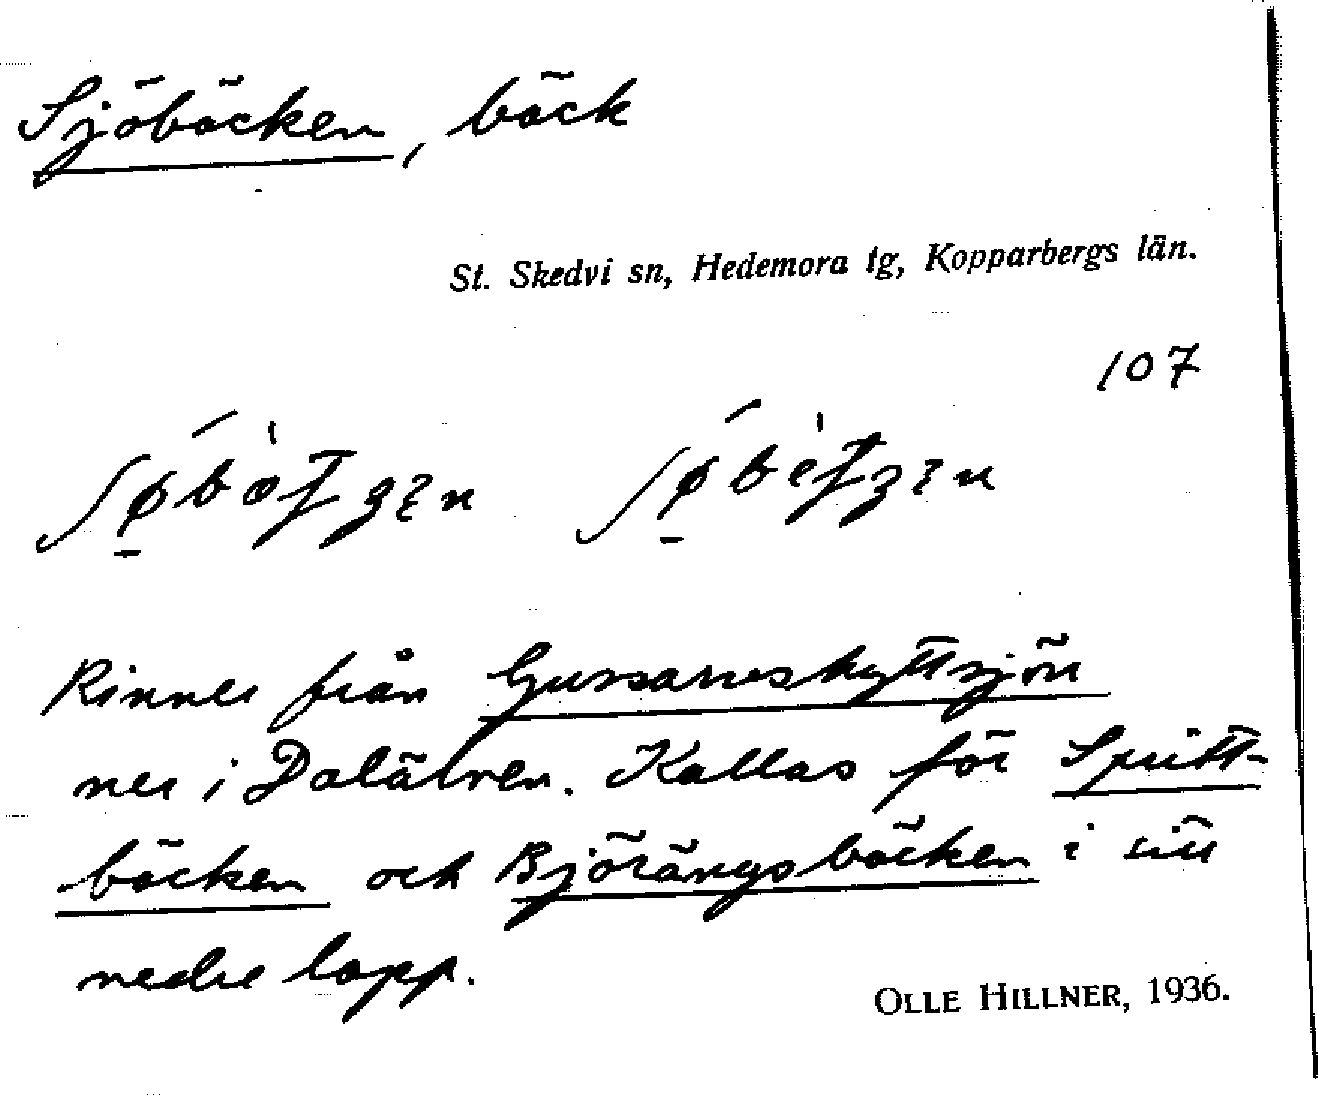 Sjöbäcken, bäck
St. Skedvi sn, Hedemora tg, Kopparbergs län.
107
Rinner från Gussarvshyttsjön
ner i Dalälven. Kallas för Spritt-
bäcken och Björängsbäcken i sitt
nedre lopp.
OLLE HILLNER, 1936.